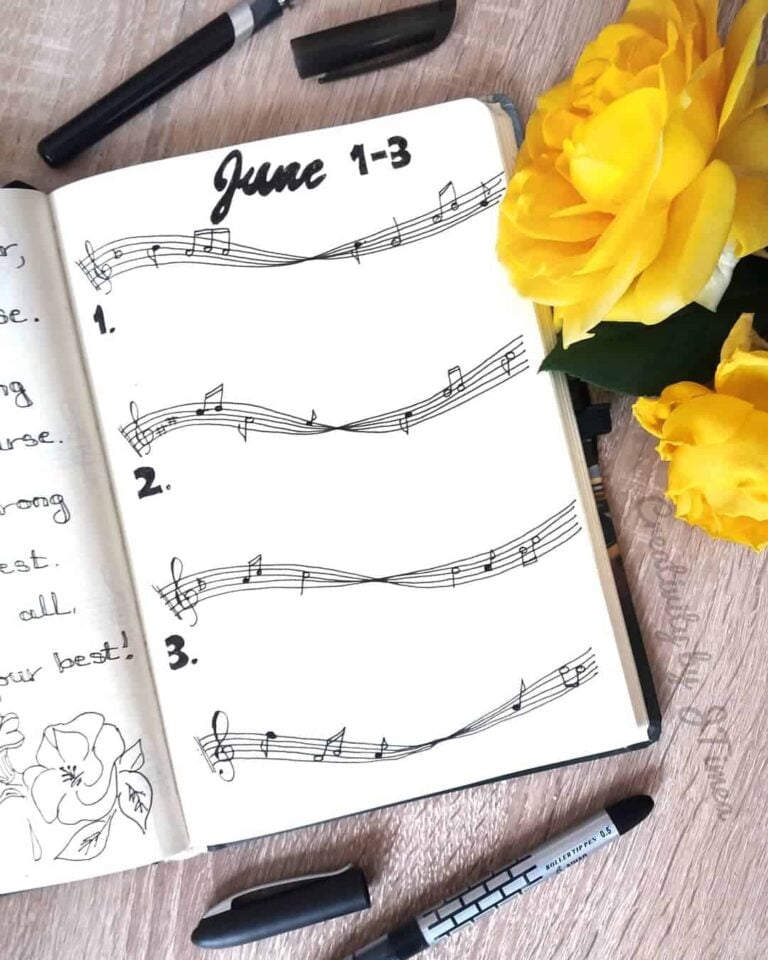 se.
ng
urse.
rong
est.
all.
your best!
June 1-3
1.
2.
3.
Creativity by JTimea
ROLLER TIP PEN 0.5